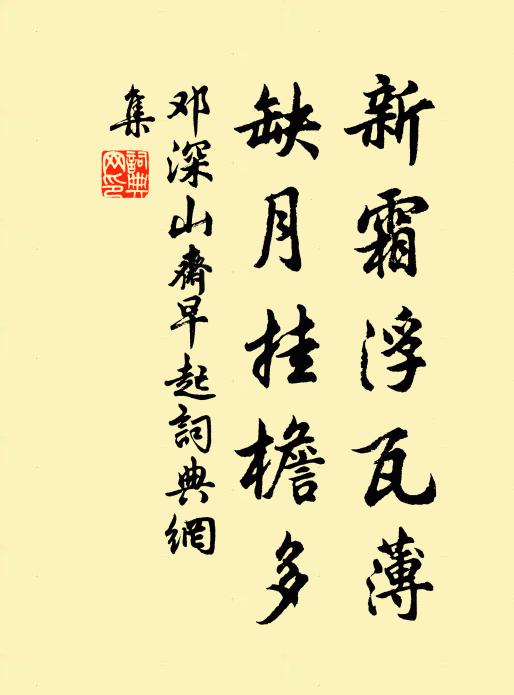 新霜浮瓦薄
缺月挂檐多
邓深山斋早起詞典網
集
詞典網印